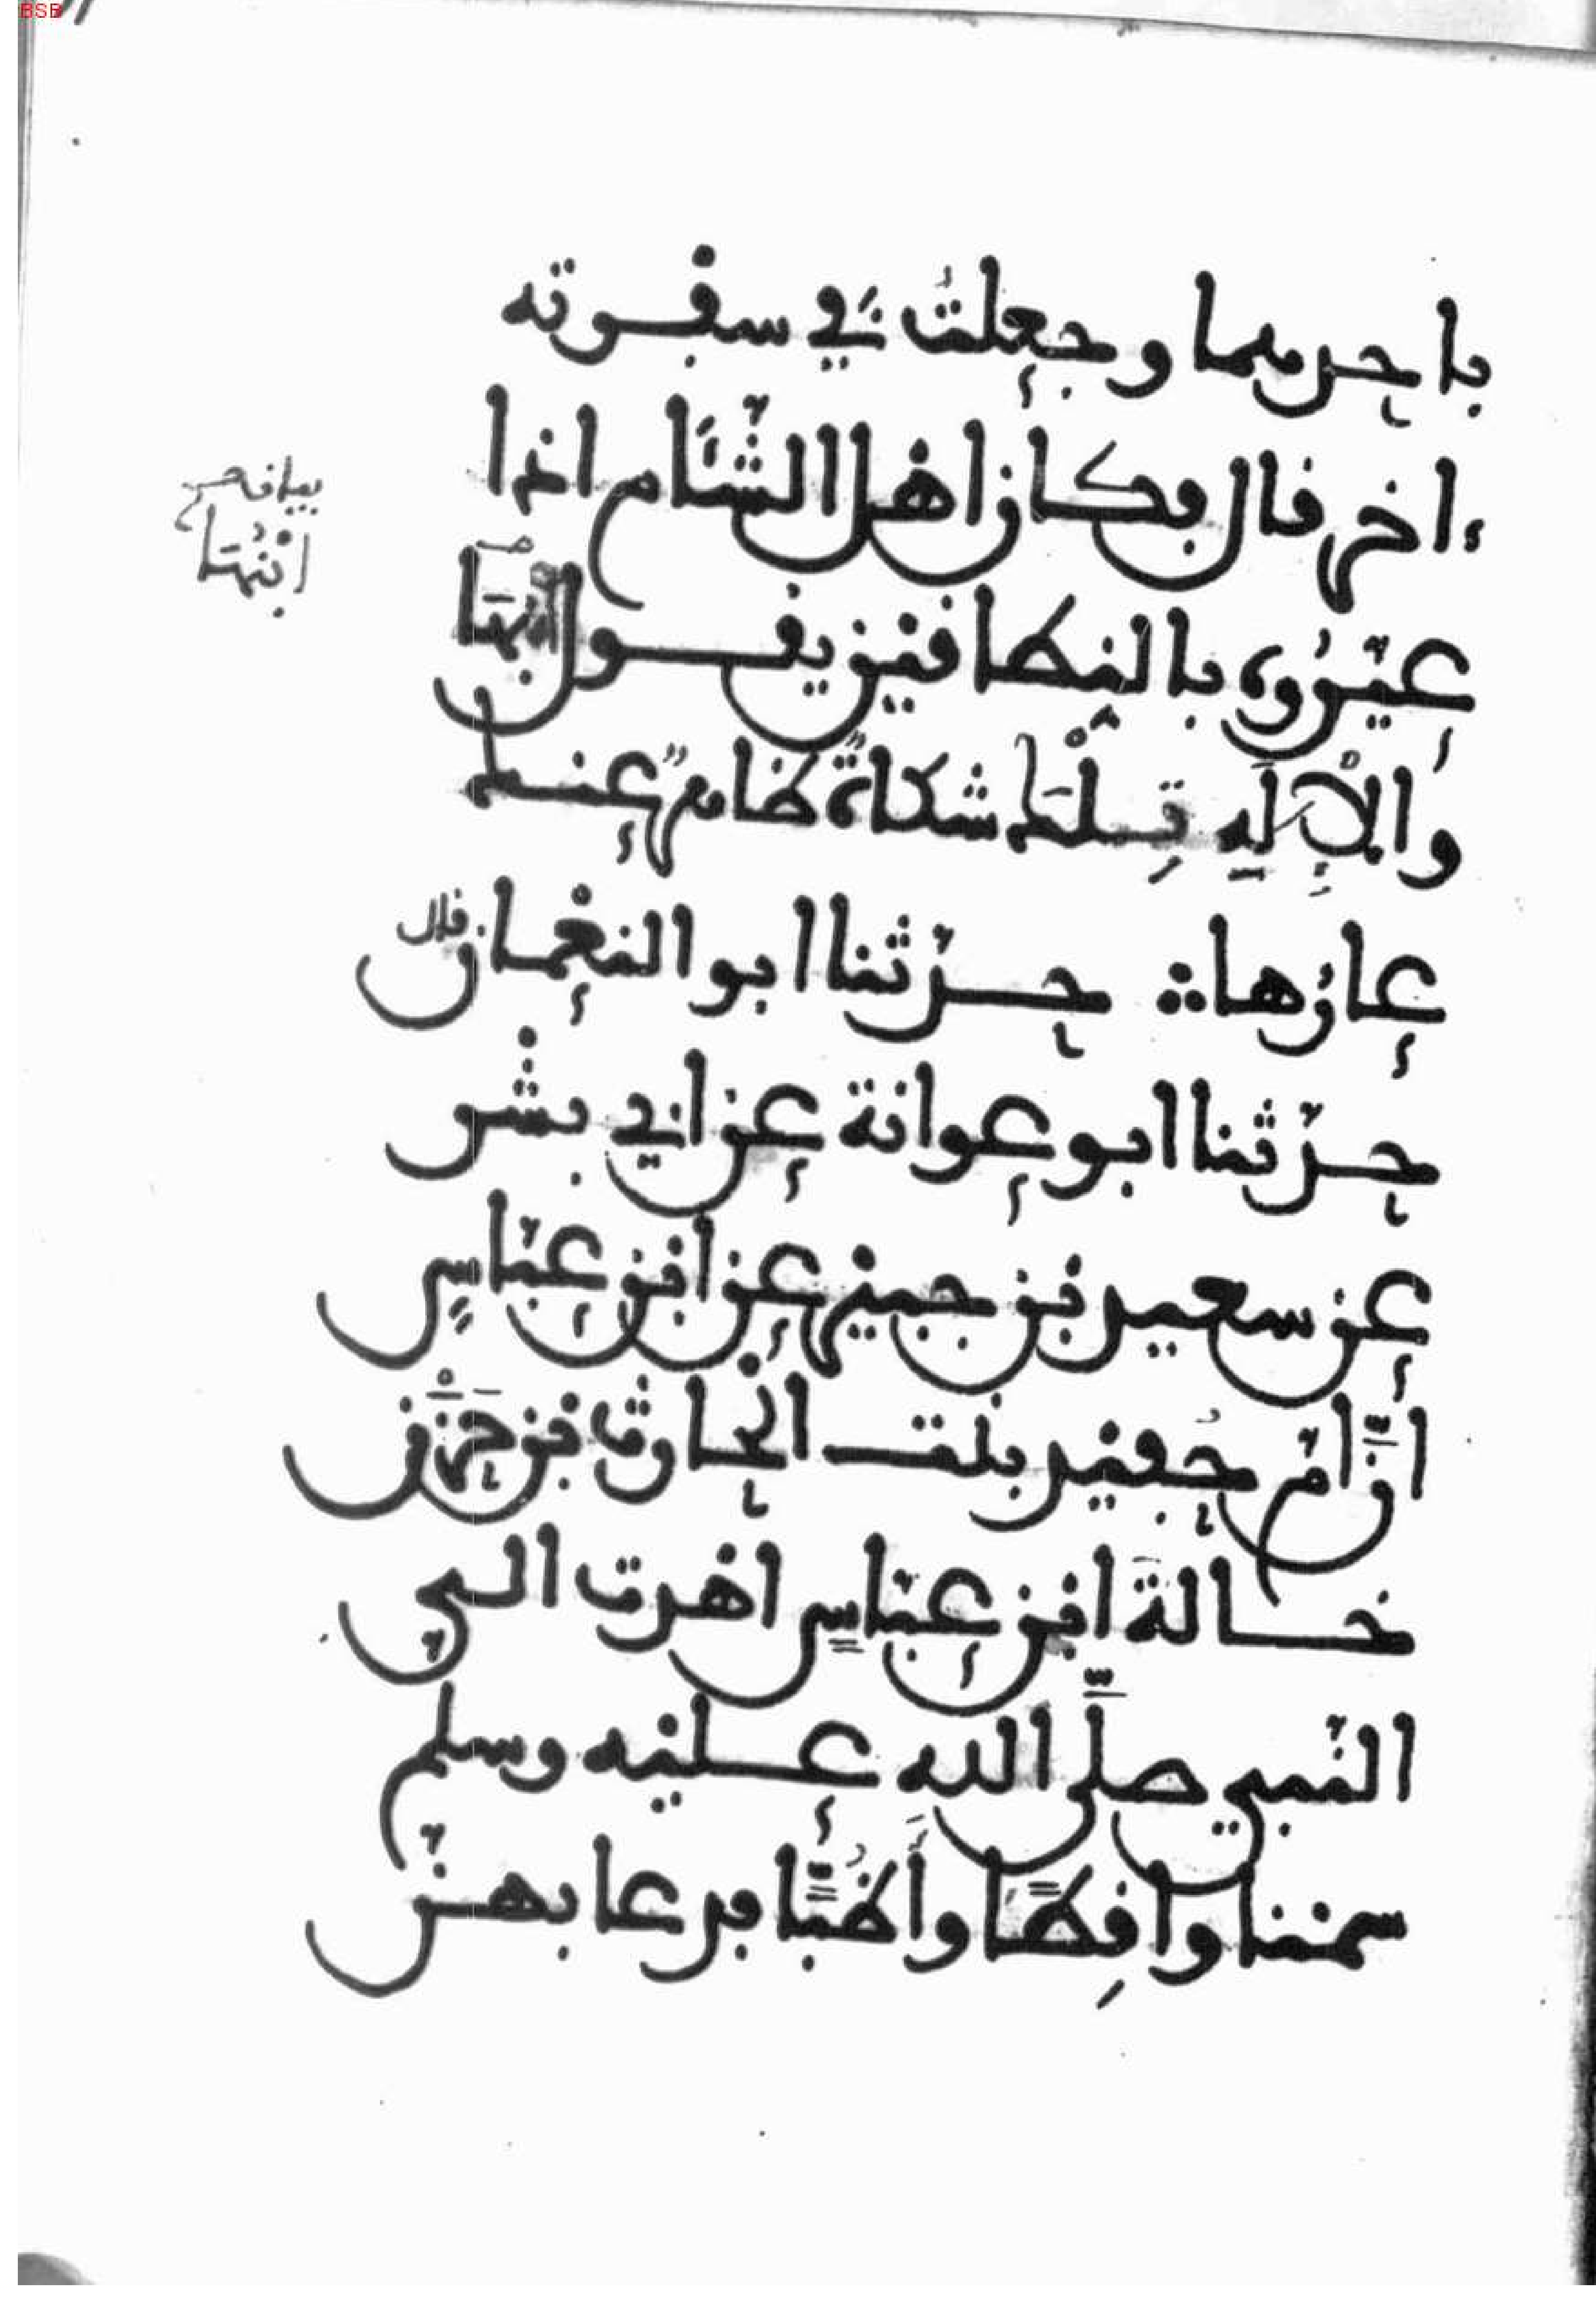 BSB
باحدهما وجعلت في سفرته
اخر قال فكان اهل الشام اذا
عيروه بالنطاقين يقول ابنها
والاله تلك شكاة ظاهر عنك
عارها حدثنا ابو النعمان قال
حدثنا ابو عوانة عن ابي بشر
عن سعيد بن جبير عن ابن عباس
ان ام حفيد بنت الحارث بن حزن
خالة ابن عباس اهدت الى
النبي صلى الله عليه وسلم
سمنا واقطا واضبا فدعا بهن
ابنها